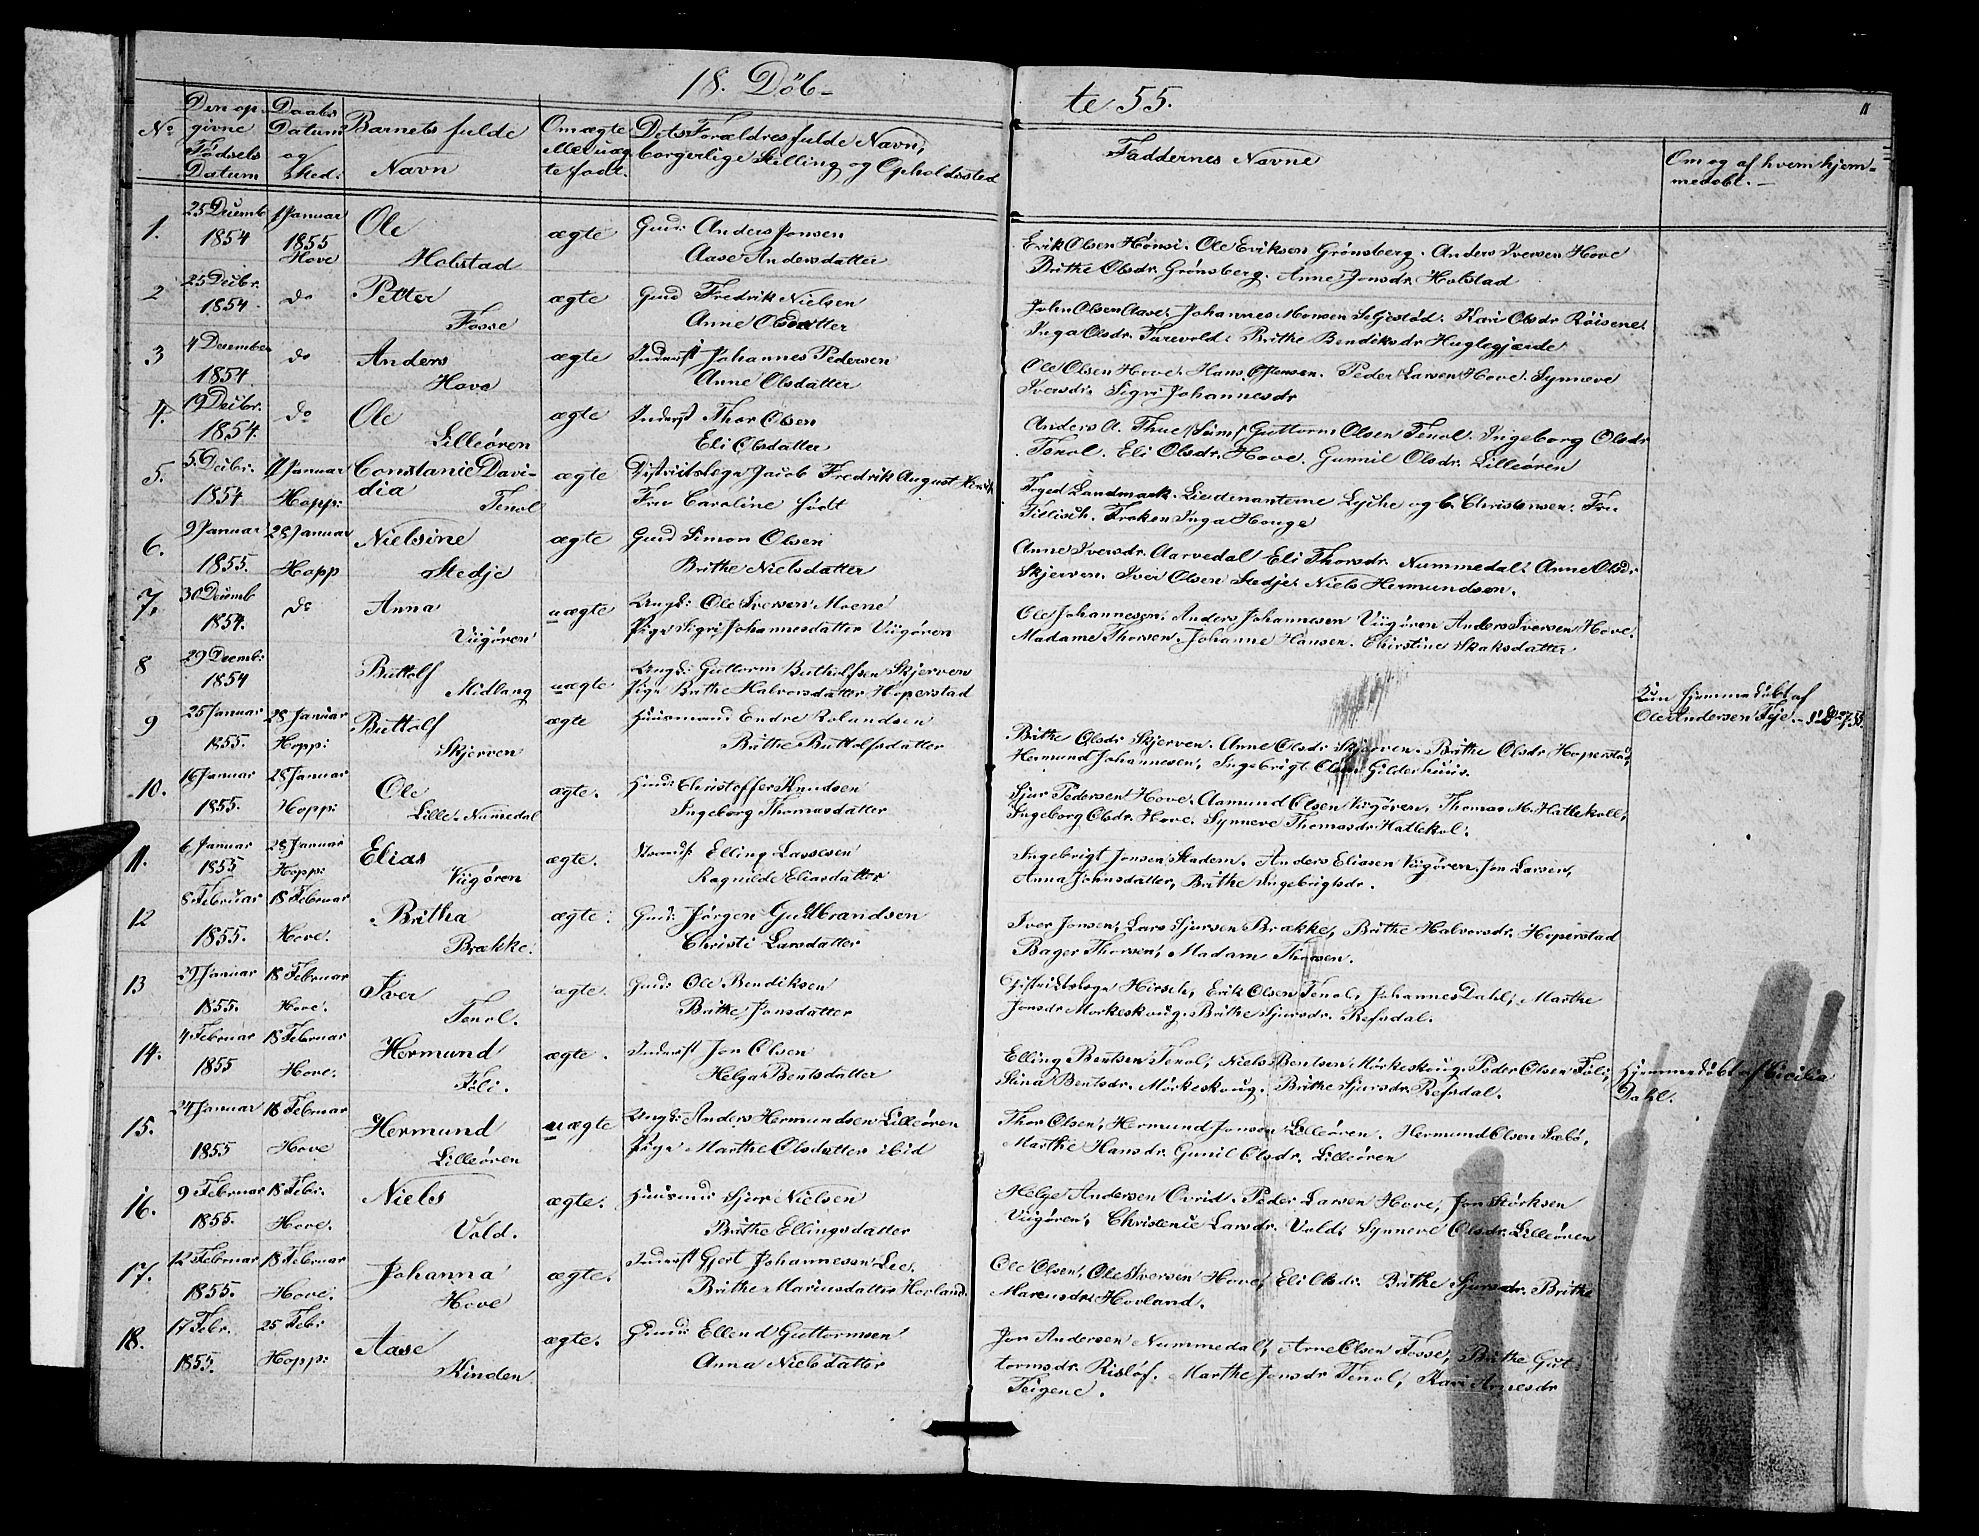 18. Döb-
te 55.
11
No
Den op-
givne
Fødsels
Datum
Daabs
Datum
og
Sted:
Barnets fulde
Navn
Om ægte
eller uæg
te født.
Dets Forældres fulde Navn,
borgerlige Stilling og Opholdssted
Faddernes Navne
Om og af hvem hjem-
medøbt. -
1. 25 Decemb 1 Januar Ole ægte Gmd: Anders Jonsen
1854 1855 Hove Holstad Aase Andersdatter
Erik Olsen Hønsi. Ole Eriksen Grønsberg. Anders Iversen Hove
Brithe Olsdr. Grønsberg. Anne Jonsdr. Holstad
2 25 Decbr. do Petter ægte Gmd Fredrik Nielsen
1854 Fosse Anne Olsdatter
John Olsen Aase. Johannes Monsen Seljestød. Kari Olsdr Röisene.
Inga Olsdr. Farevold. Brithe Bendiksdr. Huglegjærde
3 4 Desember do Anders ægte Inderst Johannes Pedersen
1854 Hove Anne Olsdatter
Ole Olsen Hove. Hans Peder Larsen Hove. Synneve
Iversdr. Sigri Johannesdr
4. 19 Decbr. do Ole ægte Inderst Thor Olsen
1854. Lilleøren Eli Olsdatter
Anders A. Thue Guttorm Olsen Tenol. Ingeborg Olsdr
Tenol. Eli Olsdr. Hove. Gunnil Olsdr. Lilleøren
5. 5 Decbr. Januar Constanie Davi- ægte Distriktslege Jacob Fredrik August
1854 Hopp: dia Tenol Fru Caroline født
Foged Landmark. Lieutenanterne Lyche og C. Christensen. Fru
Frøken Inga Houge
6. 9 Januar 28 Januar Nielsine ægte Gmd Simon Olsen
1855. Hopp Stedje Brithe Nielsdatter
Anne Iversdr. Aarvedal Eli Thorsdr. Nummedal. Anne Olsdr
Skjerven. Iver Olsen Stedje. Niels Hermundsen.
7. 30 Decemb do Anna uægte Ungk: Ole Iversen Moene
1854. Viigøren Pige Sigri Johannesdatter Viigøren
Ole Johannesen. Anders Johannesen Viigøren Anders Iversen Hove.
Madame Thorsen. Johanne Hansen. Christine Skaksdatter
8 29 Decemb: Buttolf uægte Ungk: Guttorm Butholfsen Skjerven
1854 Midlang Pige Brithe Halvorsdatter Hoperstad
Kun hjemmedøbt af
Ole Andersen Tye.
9 25 Januar 28 Januar Buttolf ægte Huusmand Endre Rolandsen
1855. Hopp: Skjerven Brithe Buttolfsdatter
Brithe Olsdr Skjerven. Anne Olsdr Skjerven. Brithe Olsdr Hoperstad,
Hermund Johannesen, Ingebrigt Olsen Gilderhuus.
10. 16 Januar 28 Januar Ole ægte. Huusm: Christoffer Knudsen
1855. Hopp: Lille Numedal Ingeborg Thomasdatter
Sjur Pedersen Hove. Aamund Olsen Viigøren, Thomas M. Hatlekoll,
Ingeborg Olsdr. Hove. Synneve Thomasdr. Hatlekol.
11. 6 Januar 28 Januar Elias ægte. Elling Larsesen
1855 Hopp: Viigøren Ragnilde Eliasdatter
Ingebrigt Jonsen Stadem. Anders Eliasen Viigøren. Jon Larsen,
Anna Johnsdatter, Brithe Ingebrigtsdr.
12 8 Februar 18 Februar Britha ægte: Gmd: Jørgen Gudbrandsen
1855. Hove. Brække. Christi Larsdatter
Iver Jonsen, Lars Sjursen Brække, Brithe Halvorsdr. Hoperstad
Bager Thorsen, Madam Thorsen.
13 29 Januar 18 Februar Iver ægte. Gmd: Ole Bendiksen
1855. Hove. Tenol. Brithe Jonsdatter
Distriktslege Hirsch, Erik Olsen Tenol, Johannes Dahl, Marthe
Jonsdr Morkeskoug. Brithe Sjursdr. Refsdal.
14. 4 Februar 18 Februar Hermund ægte. Inderst Jon Olsen
1855 Hove. Föli. Helga Bentsdatter
Elling Bentsen Tenol, Niels Bentsen Mörkeskoug. Peder Olsen Föli,
Stina Bentsdr. Mörkeskoug. Brithe Sjursdr. Refsdal.
Hjemmedøbt af Cicilia
Dahl.
15. 24 Januar 18 Februar Hermund uægte Ungk: Anders Hermundsen Lilleøren
1855 Hove Lilleøren Pige Marthe Olsdatter ibid
Thor Olsen, Hermund Jonsen Lilleøren. Hermund Olsen Sæbö,
Marthe Hansdr. Gunil Olsdr. Lilleøren
16. 9 Februar 18 Febr. Niels ægte. Huusmd: Sjur Nielsen
1855. Hove. Vold. Brithe Ellingsdatter
Helge Andersen Ovrid. Peder Larsen Hove, Jon Störksen
Viigøren, Christense Larsdr. Vold, Synneve Olsdr. Lilleøren
17. 12 Februar 18 Februar Johanna ægte. Inderst Gjert Johannesen Lee.
1855. Hove. Hove Brithe Mariusdatter Hovland
Ole Olsen, Ole Iversen Hove, Eli Olsdr. Brithe Sjursdr. Brithe
Marcusdr. Hovland.
18. 17 Febr. 25 Febr Aase ægte. Gmd: Ellend Guttormsen
1855. Hopp: Kinden Anna Nielsdatter
Jon Andersen Nummedal, Arne Olsen Fosse, Brithe Gut-
tormsdr. Risløf. Marthe Jonsdr Tenol, Kari Arnesdr
Teigene.